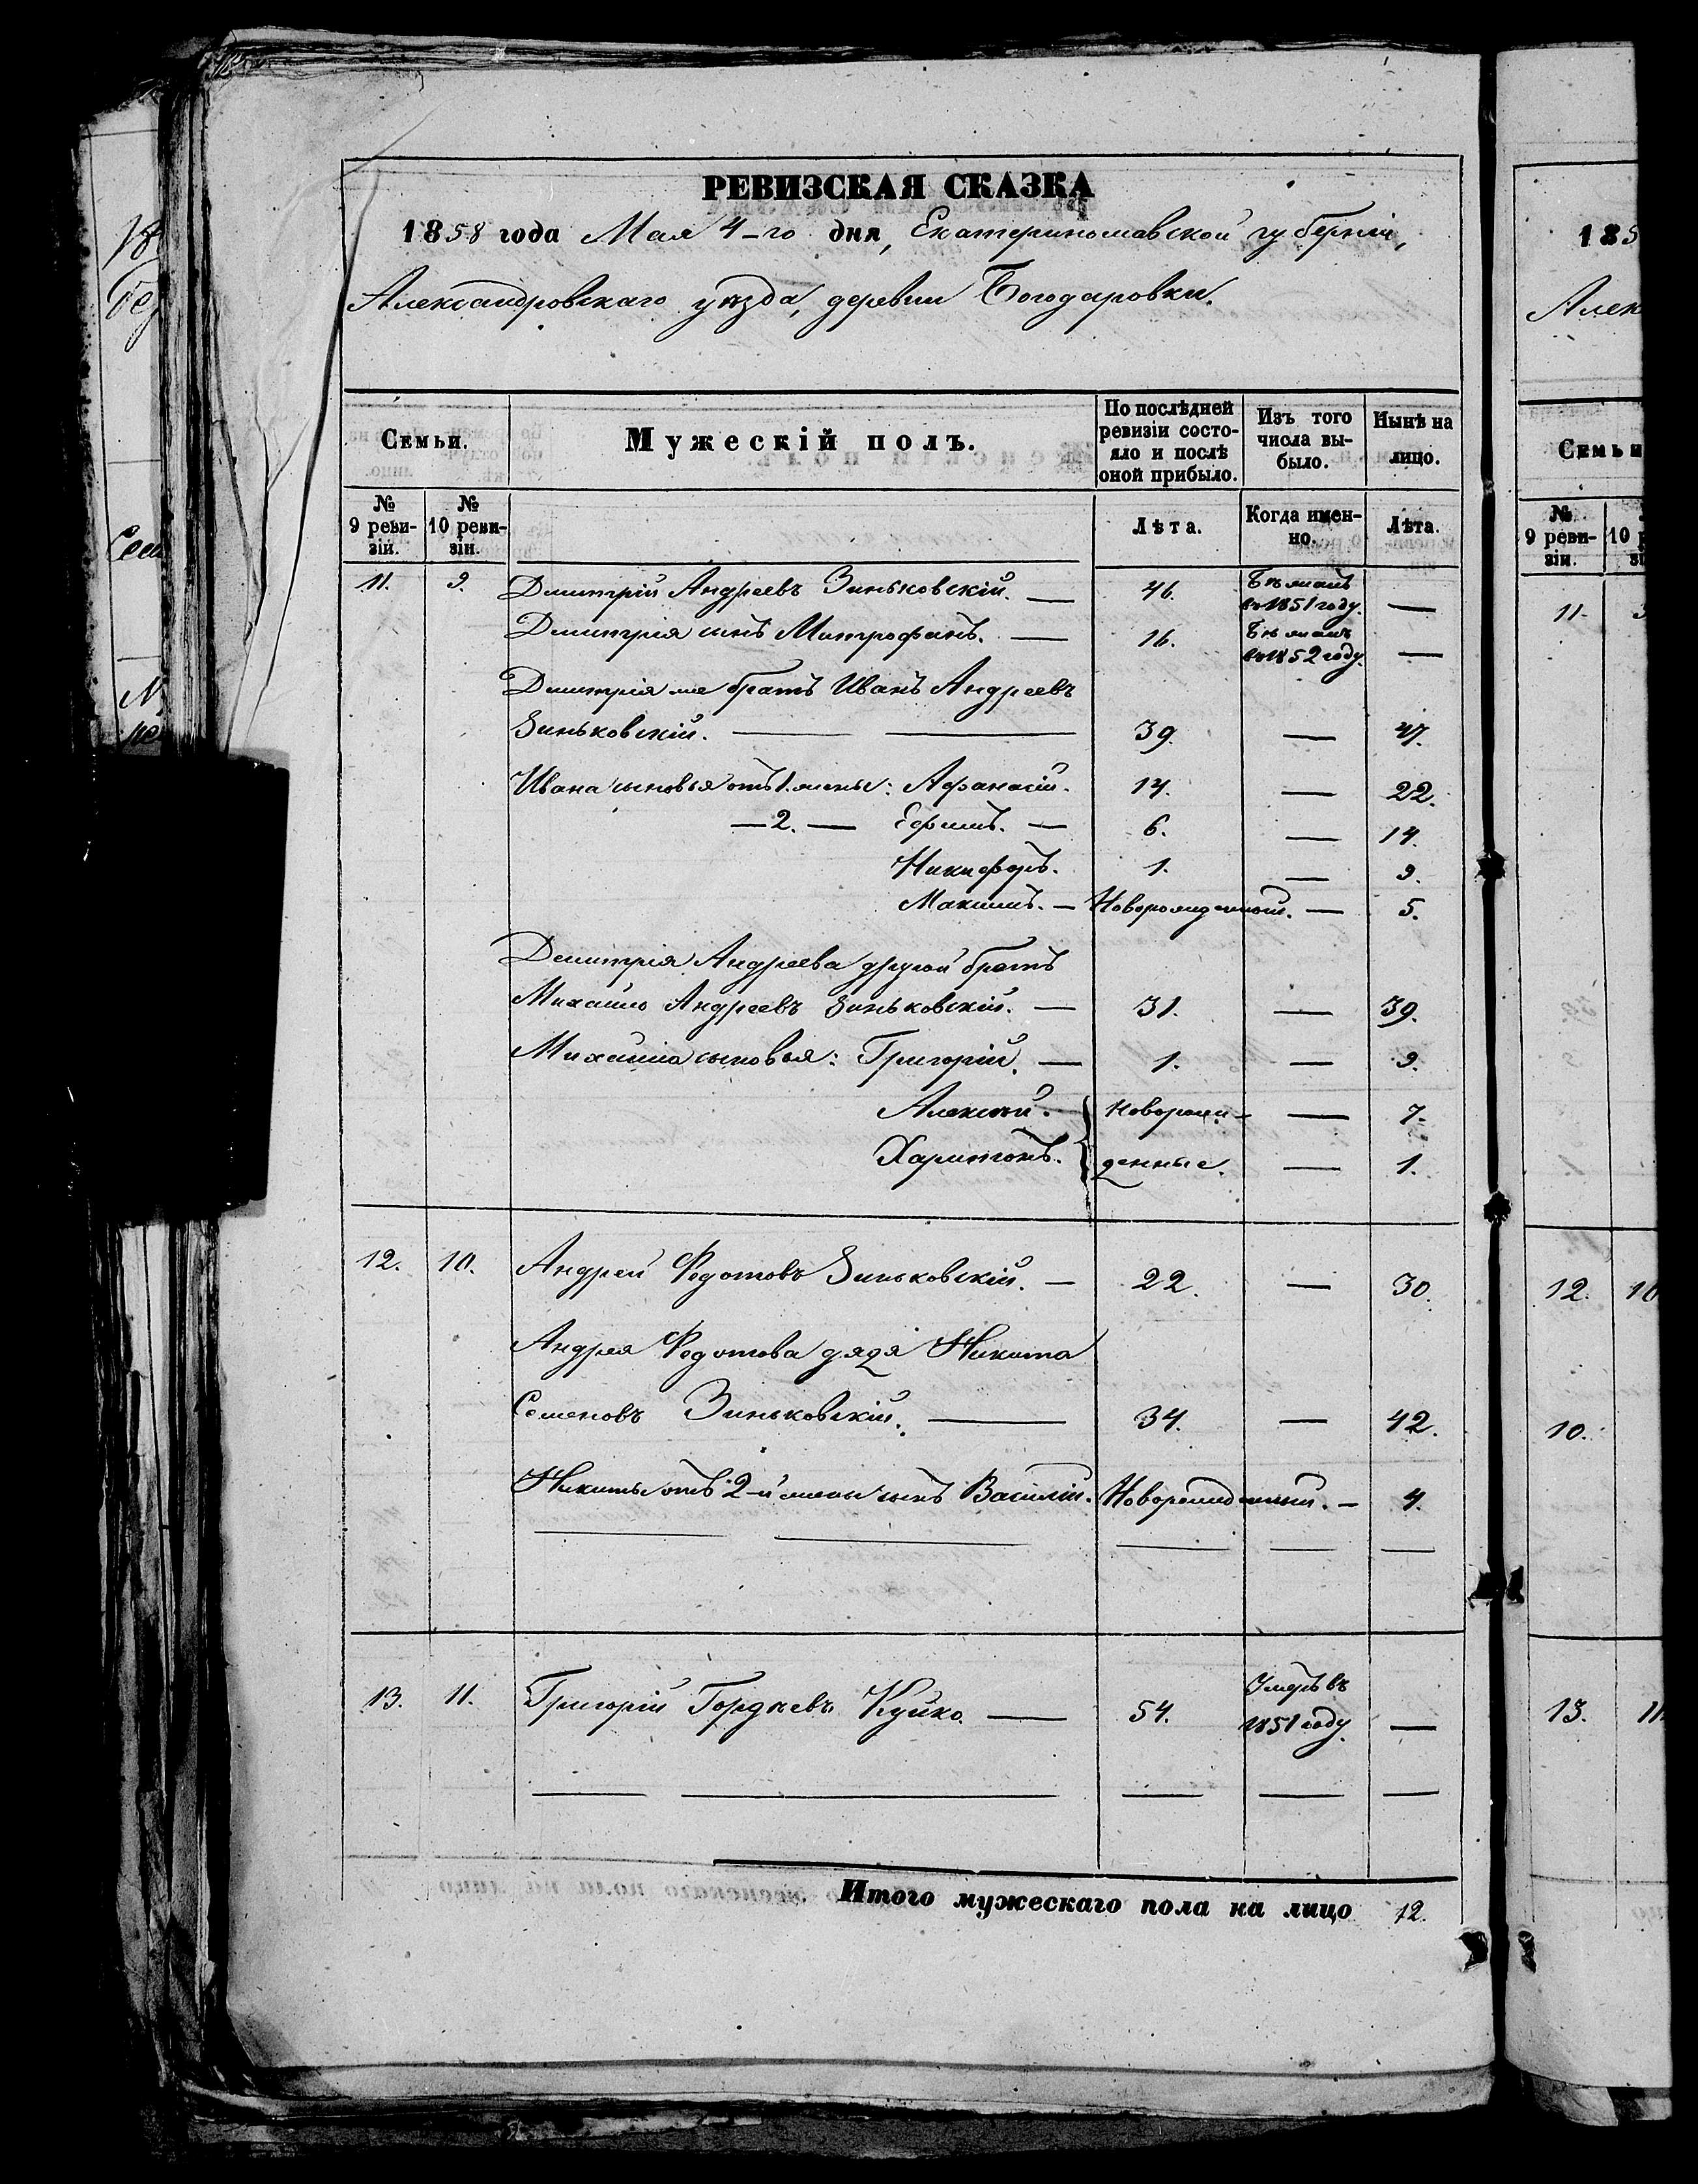 РЕВИЗСКАЯ СКАЗКА
1858 года Мая 4-го дня, Екатеринославской губерніи,
Александровскаго уѣзда, деревни Богодаровки.
Семьи.
Мужескій полъ.
По послѣдней ревизіи состо-
яло и послѣ оной прибыло.
Изъ того числа вы-
было.
Нынѣ на лицо.
№ 9 реви-
зіи.
№ 10 реви-
зіи.
Лѣта.
Когда имен-
но.
Лѣта.
11. 9. Дмитрій Андреевъ Зиньковскій. — 46. Бѣжалъ въ 1851 году. —
Дмитрія сынъ Митрофанъ. — 16. Бѣжалъ въ 1852 году. —
Дмитрія же братъ Иванъ Андреевъ
Зиньковскій. — — 39. — 47.
Ивана сыновья отъ 1. жены: Афанасій. 14. — 22.
— 2. — Ефимъ. — 6. — 14.
Никифоръ. 1. — 9.
Максимъ. — Новорожденный. — 5.
Дмитрія Андреева другой братъ
Михайло Андреевъ Зиньковскій. — 31. — 39.
Михайла сыновья: Григорій. — 1. — 9.
Алексѣй. Новорож- — 7.
Харитонъ. денные. — 1.
12. 10. Андрей Федотовъ Зиньковскій. — 22. — 30.
Андрея Федотова дядя Никита
Семеновъ Зиньковскій. — 34. — 42.
Никиты отъ 2-й жены сынъ Василій. Новорожденный. — 4.
13. 11. Григорій Гордѣевъ Куйко. — 54. Умеръ въ 1851 году. —
Итого мужескаго пола на лицо 12.
185
Алек
Семьи
№ 9 реви-
зіи.
11.
12. 10
10.
13. 11